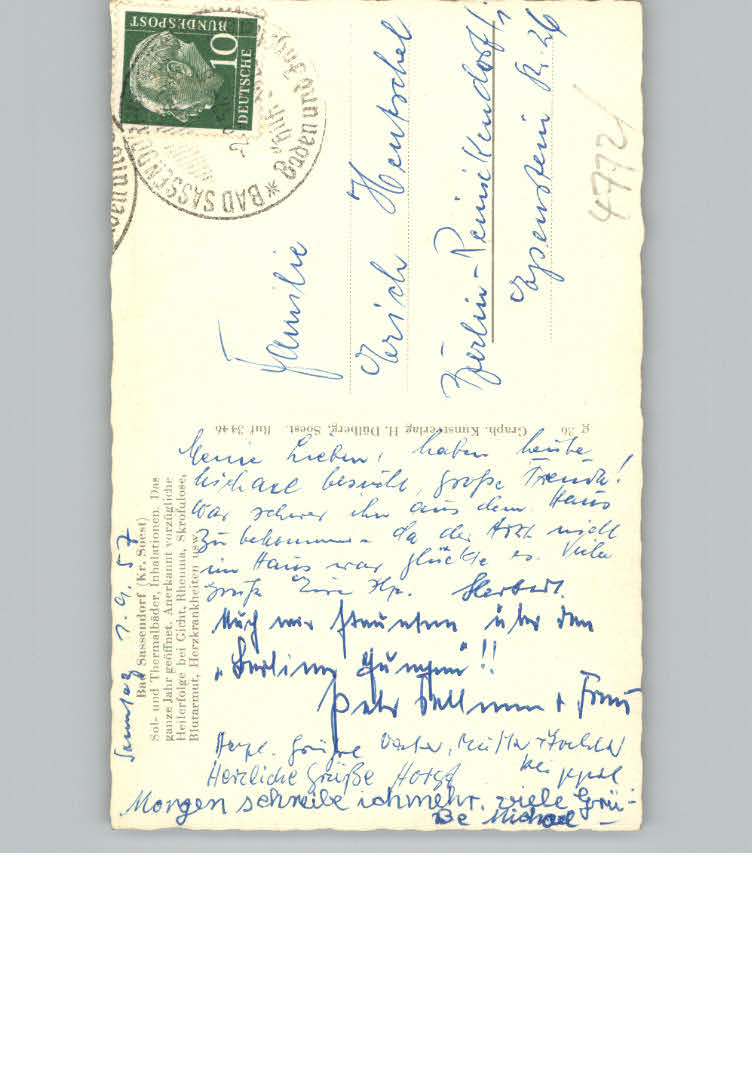 10
DEUTSCHE
BUNDESPOST
BAD SASSENDORF
Familie
Erich Hentschel
Berlin-Reinickendorf
Eyenstein Str. 26
4772
g 36 Graph. Kunstverlag H. Dülberg, Soest. Ruf 3446
Bad Sassendorf (Kr. Soest)
Sol- und Thermalbäder, Inhalationen. Das
ganze Jahr geöffnet. Anerkannt vorzügliche
Heilerfolge bei Gicht, Rheuma, Skrofulose,
Blutarmut, Herzkrankheiten usw.
Sonntag 1.9.57
Meine Lieben, haben heute
Michael besucht, große Freude!
War schwer ihn aus dem Haus
zu bekommen - da der Arzt nicht
im Haus war glückte es. Viele
Grüße Herbert.
Auch wir staunten über den
"Berliner Jungen"!!
+ Frau
Herzl. Grüße Vater, Mutter +
Herzliche Grüße Horst
Morgen schreibe ich mehr. viele Grü-
ße Michael